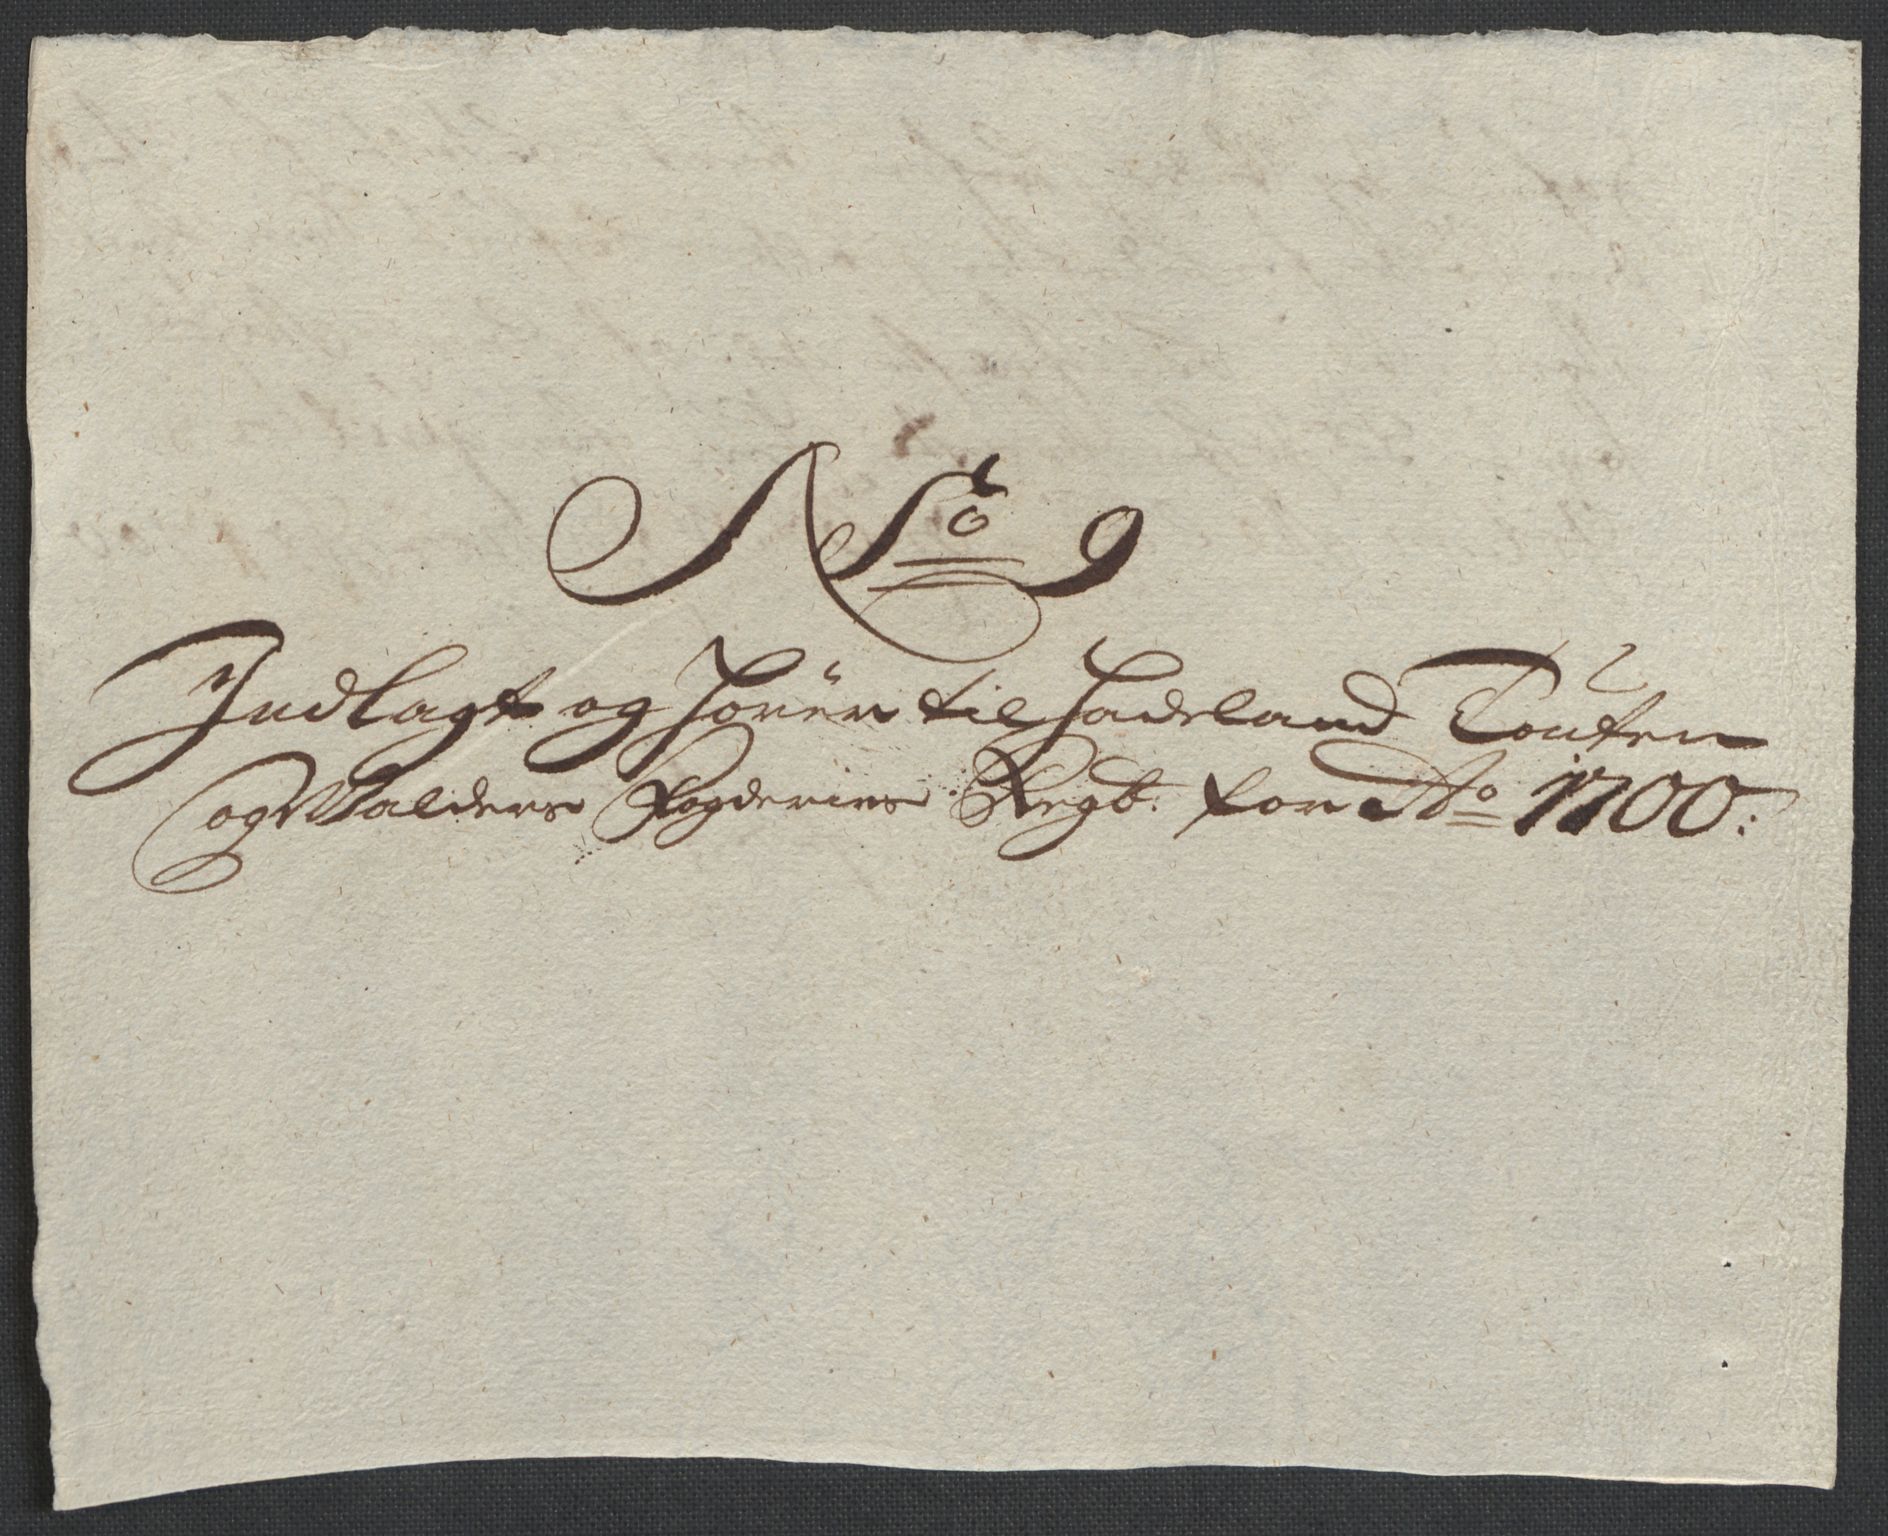 No 9
Indlagt og hører til Hadeland Toten
og Walders Fogderies Regb: for Ao 1700: